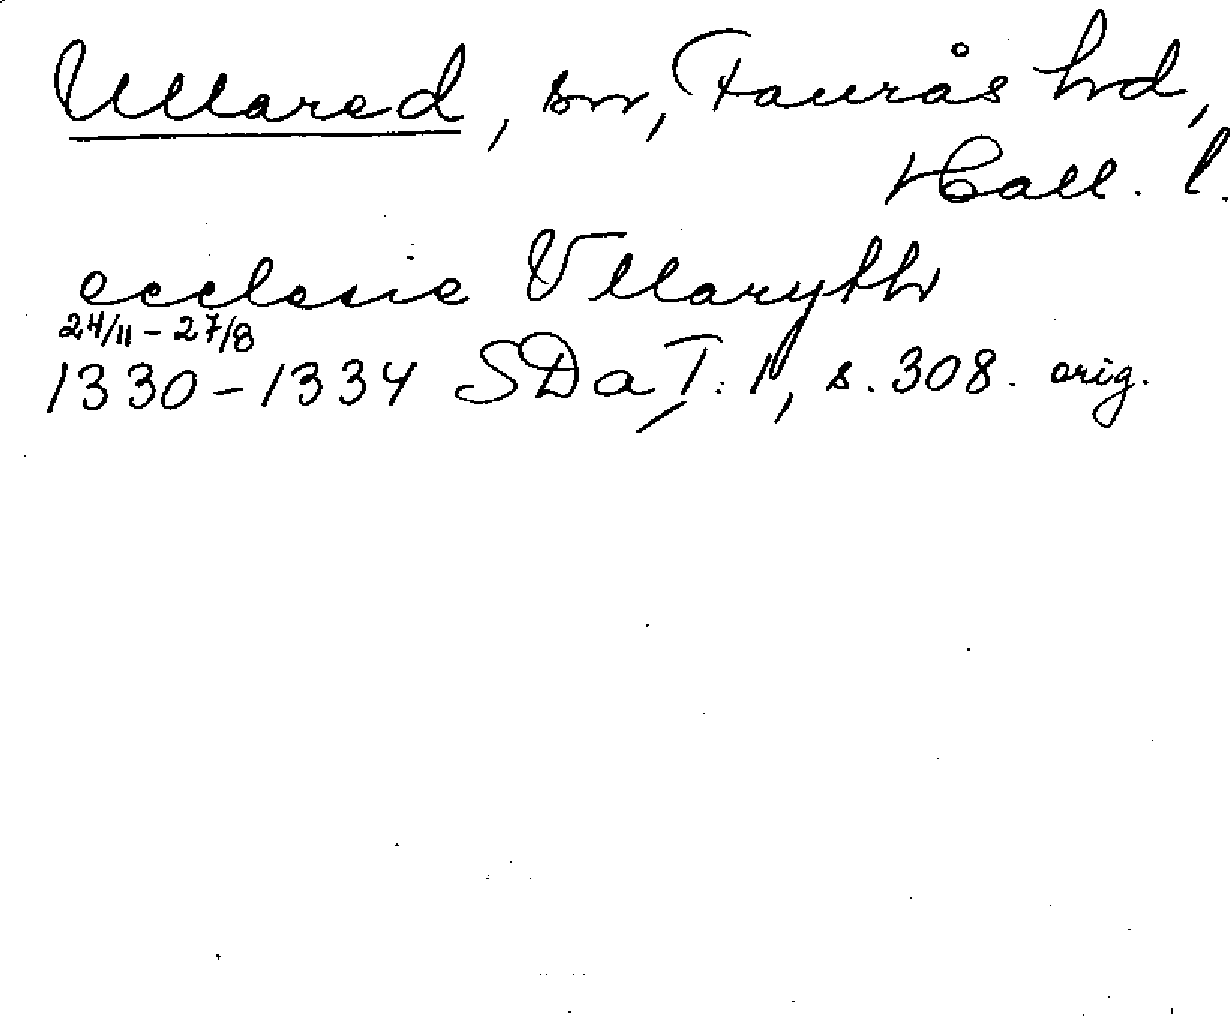 Ullared, sn, Faurås hd,
Hall. l.
ecclesie Vllaryth
24/11 – 27/8
1330–1334 SDaT: 1, s. 308. orig.